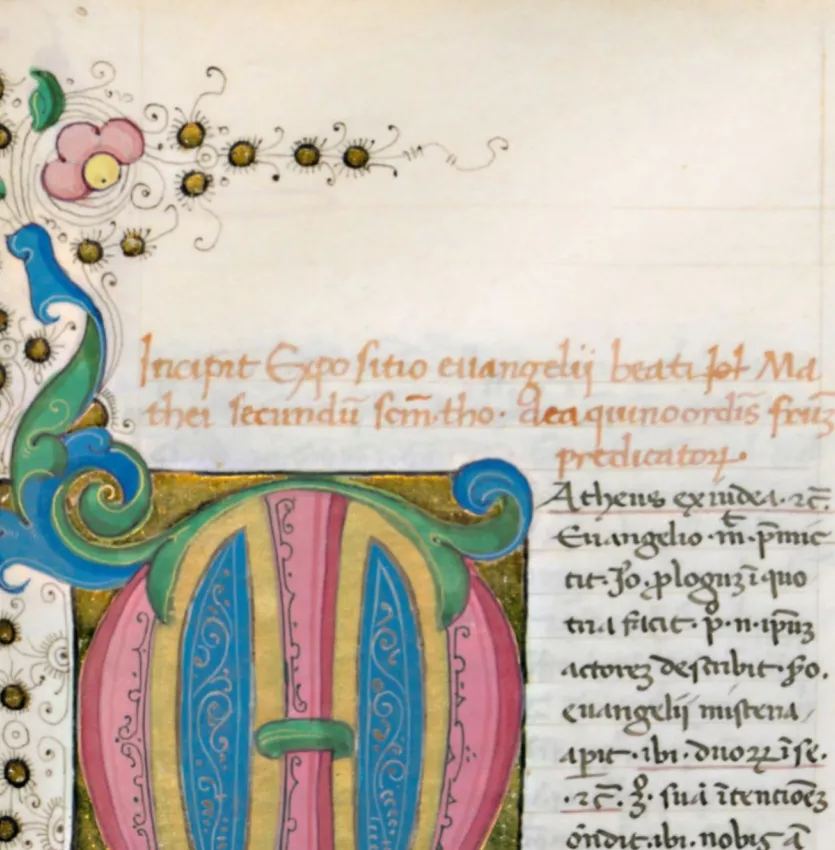 Incipit Expositio euangelij beati Ma
thei secundū scm̄ tho. de aquino ordīs frūꝫ
predicatoꝝ.
Atheus ex iudea. ⁊c̄.
Euangelio. m̄. p̄mic
tit. Jo. ꝓloguꝫ ī quo
tria facit. p̊. n. ip̄uꝫ
actoreꝫ describit. s̊o.
euangelij misteria
apit. ibi. duoꝝ ī se.
.⁊c̄. 3̊. suā ītentioēꝫ
ōndit. ibi. nobis ā